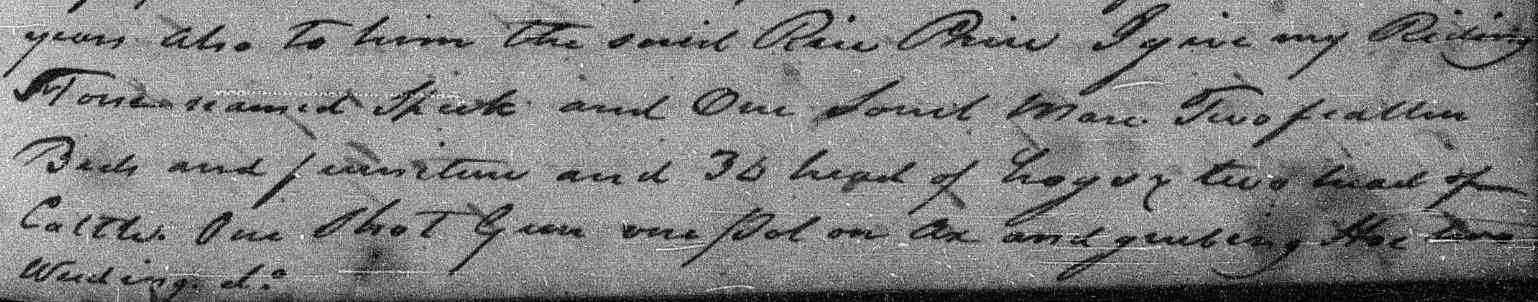 years also to him the said Rice Price I give my Riding
Horse named Speek and One Sorril Mare Two feather
Beds and furniture and 36 head of hogs & two head of
Cattle. One Shot Gun one Pol on Ax and grubing Hoe two
Weeding do